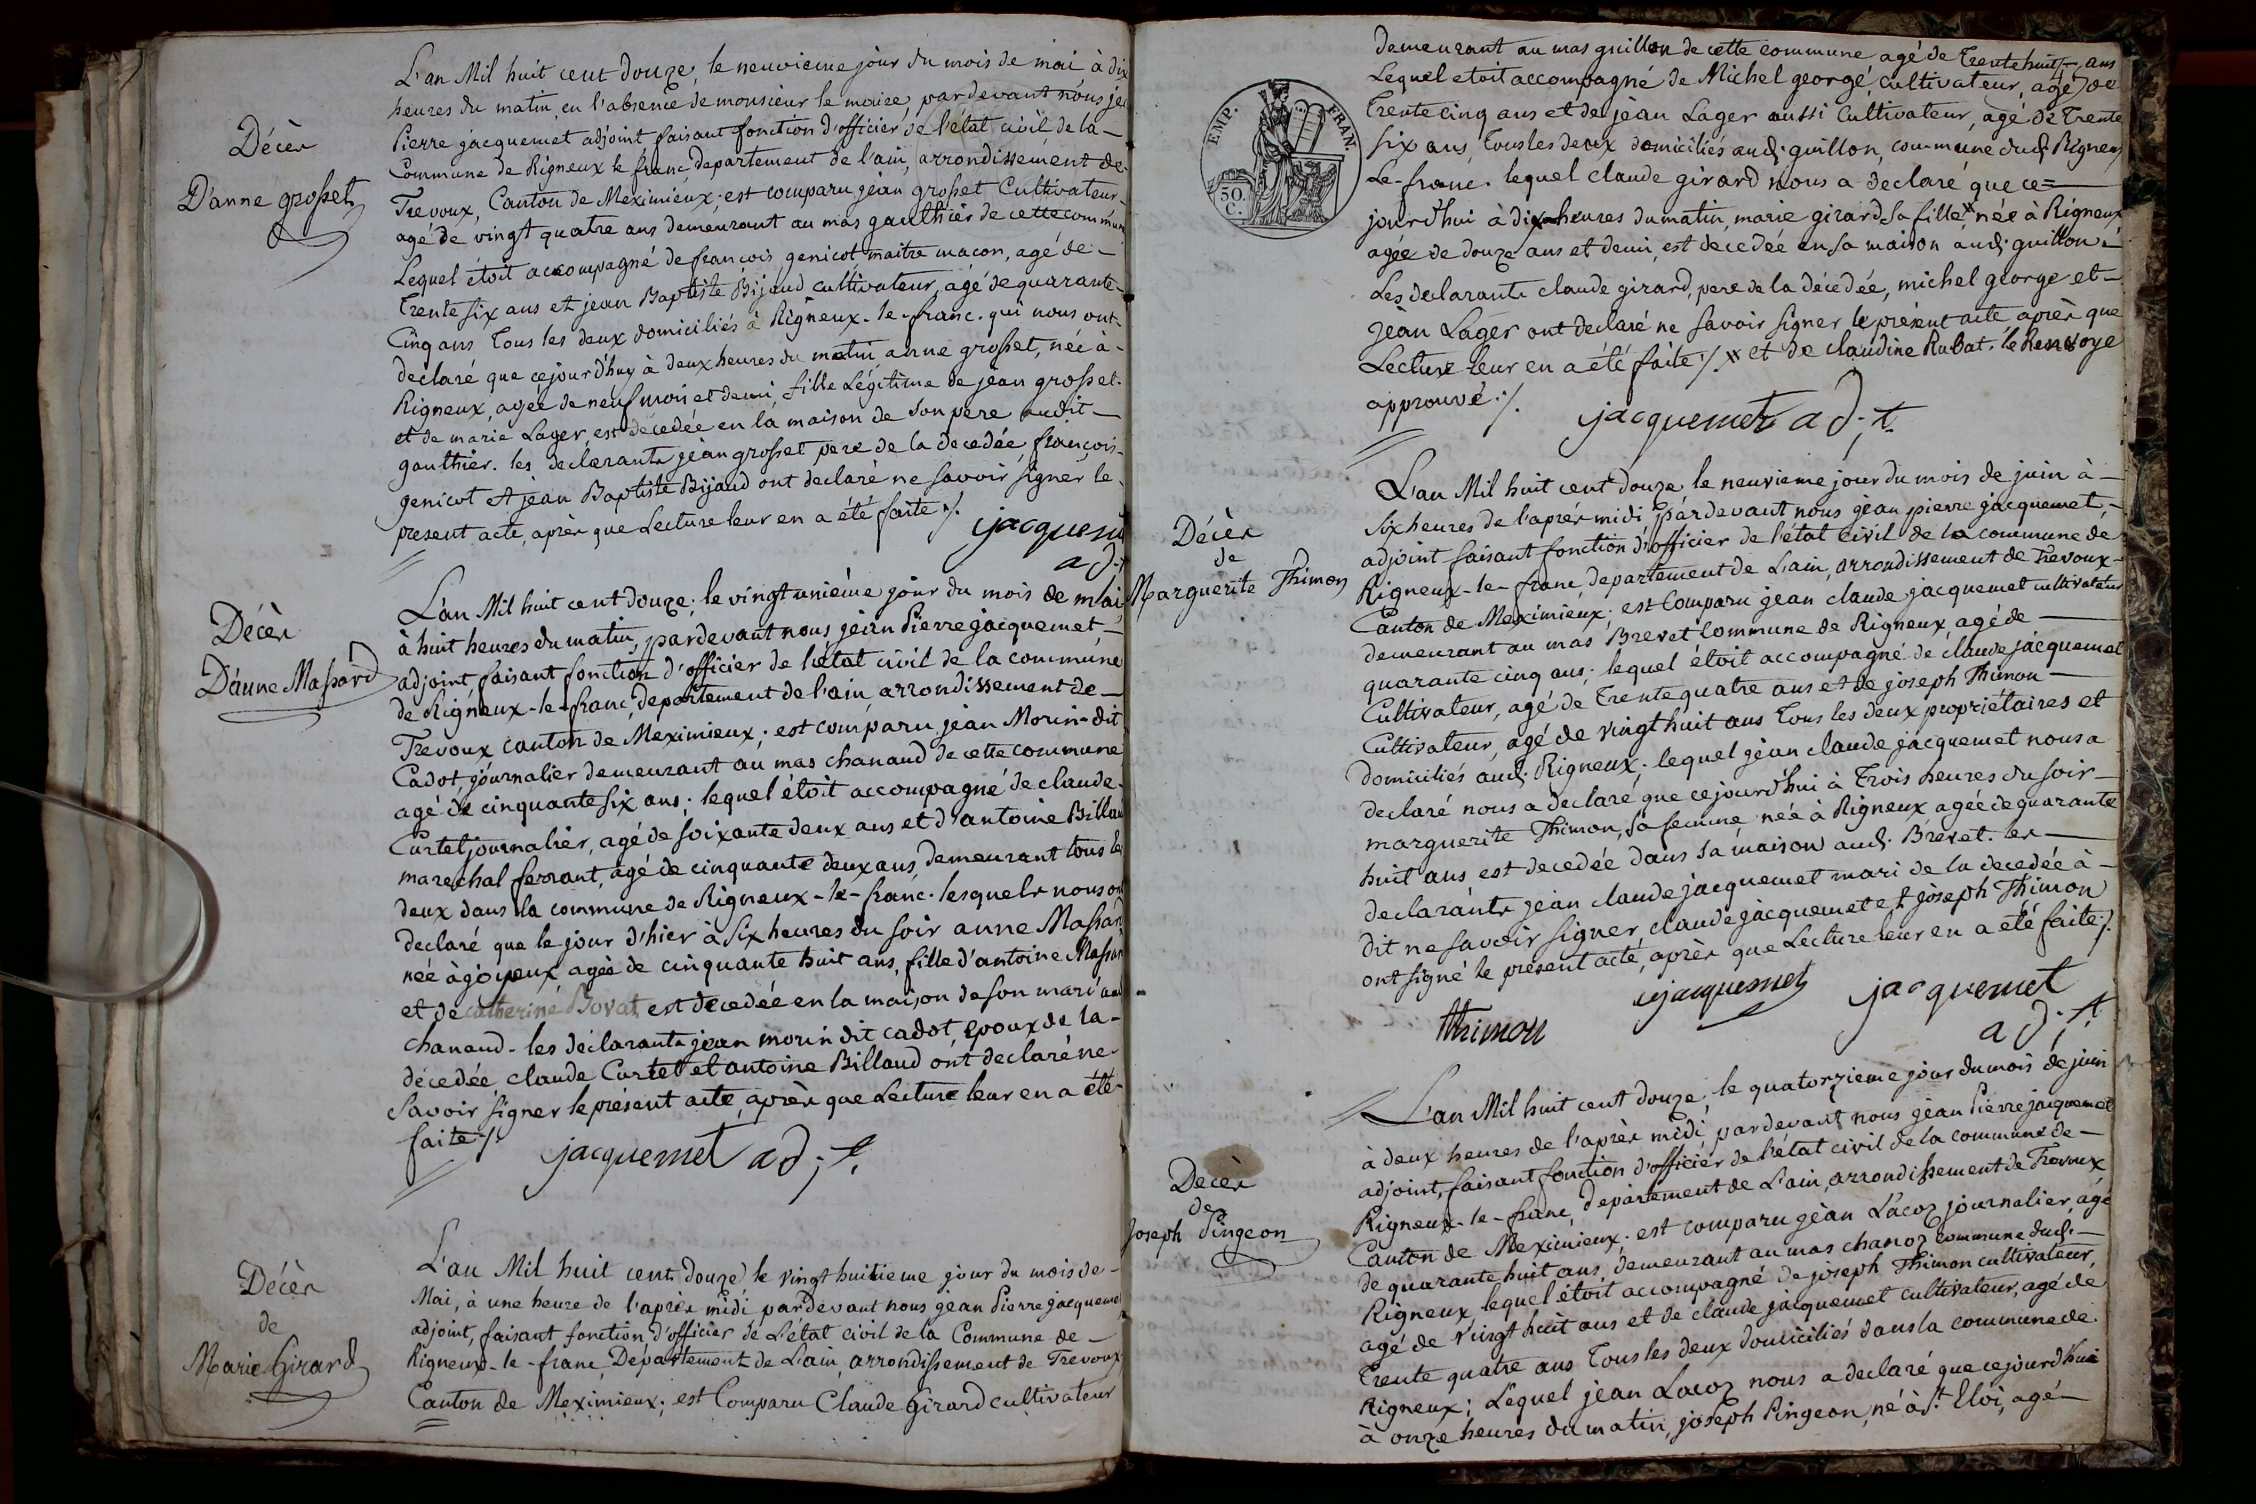 Décès
D'anne grosset
L'an Mil huit cent douze, le neuvieme jour du mois de mai à dix
heures du matin, en l'absence de monsieur le maire, pardevant nous jean
Pierre jacquemet adjoint faisant fonction d'officier de l'état civil de la
Commune de Rigneux le franc departement de l'ain, arrondissement de
Trevoux, Canton de Meximieux; est comparu jean grosset Cultivateur
agé de vingt quatre ans demeurant au mas gauthier de cette commune
Lequel étoit accompagné de francois genicot maitre macon, agé de
Trente six ans et jean Baptiste Bijaud cultivateur, agé de quarante
Cinq ans Tous les deux domiciliés à Rigneux-le-franc. qui nous ont
declaré que cejourd'huy à deux heures du matin anne grosset, née à
Rigneux, agée de neuf mois et demi, fille Légitime de jean grosset
et de marie Lager, est décedée en la maison de son pere audit
gauthier. les declarants jean grosset pere de la decedée, françois
genicot et jean Baptiste Bijaud ont declaré ne savoir signer le
present acte, après que Lecture leur en a été faite ./.
jacquemet
adj.t
Décès
D'anne Massard
L'an Mil huit cent douze; le vingt unième jour du mois de mai
à huit heures du matin, pardevant nous jean Pierre jacquemet,
adjoint faisant fonction d'officier de l'état civil de la commune
de Rigneux-le-franc, departement de l'ain, arrondissement de
Trevoux canton de Meximieux; est comparu jean Morin-dit
Cadot, journalier demeurant au mas chanaud de cette commune
agé de cinquante six ans; lequel étoit accompagné de claude
Curtet journalier, agé de soixante deux ans et d'antoine Billaud
marechal ferrant, agé de cinquante deux ans, demeurant tous les
deux dans la commune de Rigneux-le-franc. lesquels nous ont
declaré que le jour d'hier à six heures du soir anne Massard
née à joyeux, agée de cinquante huit ans, fille d'antoine Massard
et de catherine Bovat est decedée en la maison de son mari aud.
chanaud. les déclarants jean morin dit cadot, epoux de la
décedée, claude Curtet et antoine Billaud ont declaré ne
savoir signer le présent acte, après que Lecture leur en a été
faite ./.
jacquemet adj.t
Décès
de
Marie Girard
L'an Mil huit cent douze, le vingt huitieme jour du mois de
Mai, à une heure de l'après midi pardevant nous jean Pierre jacquemet
adjoint, faisant fonction d'officier de L'état civil de la Commune de
Rigneux-le-franc, Département de L'ain, arrondissement de Trevoux,
Canton de Meximieux; est Comparu Claude Girard cultivateur
EMP. FRAN.
50.
C.
47
demeurant au mas guillon de cette commune agé de Trente huit ans
Lequel etoit accompagné de Michel george, cultivateur, agé de
Trente cinq ans et de jean Lager aussi Cultivateur, agé de Trente
six ans, Tous les deux domiciliés aud. guillon, commune dud. Rigneux
Le-franc. lequel claude girard nous a declaré que ce=
jourd'hui à dix heures du matin, marie girard sa fille # née à Rigneux
agée de douze ans et demi, est decedée en sa maison aud. guillon
Les declarants claude girard, pere de la décedée, michel george et
jean Lager ont declaré ne savoir signer le présent acte après que
Lecture leur en a été faite ./. # et de claudine Rubat. le Renvoye
approuvé ./.
jacquemet adj.t
Décès
de
Marguerite Thimon
L'an Mil huit cent douze le neuvieme jour du mois de juin à
six heures de l'après midi, pardevant nous jean pierre jacquemet,
adjoint faisant fonction d'officier de l'état civil de la commune de
Rigneux-le-franc, departement de L'ain, arrondissement de Trevoux
Canton de Meximieux; est Comparu jean claude jacquemet cultivateur
demeurant au mas Brevet Commune de Rigneux, agé de
quarante cinq ans; lequel étoit accompagné de claude jacquemet
Cultivateur, agé de Trente quatre ans et de joseph Thimon
Cultivateur, agé de vingt huit ans Tous les deux propriétaires et
domiciliés aud. Rigneux; lequel jean claude jacquemet nous a
declaré nous a declaré que cejourd'hui à Trois heures du soir
marguerite Thimon, sa femme née à Rigneux, agée de quarante
huit ans est decedée dans sa maison aud. Brevet. les
declarants jean claude jacquemet mari de la decedée à
dit ne savoir signer claude jacquemet et joseph Thimon
ont signé le présent acte, après que Lecture leur en a été faite ./.
thimon
cjacquemet
jacquemet
adj.t
Decès
de
Joseph Pingeon
L'an Mil huit cent douze, le quatorzieme jour du mois de juin
à deux heures de l'après midi, pardevant nous jean Pierre jacquemet
adjoint, faisant fonction d'officier de l'état civil de la commune de
Rigneux-le-franc, departement de L'ain, arrondissement de Trevoux
Canton de Meximieux; est comparu jean Lacoz journalier, agé
de quarante huit ans, demeurant au mas chanoz commune dud.
Rigneux, lequel étoit accompagné de joseph Thimon cultivateur,
agé de vingt huit ans et de claude jacquemet cultivateur, agé de
Trente quatre ans Tous les deux domiciliés dans la commune de
Rigneux; Lequel jean Lacoz nous a declaré que cejourd'hui
à onze heures du matin, joseph Pingeon, né à St Eloi, agé